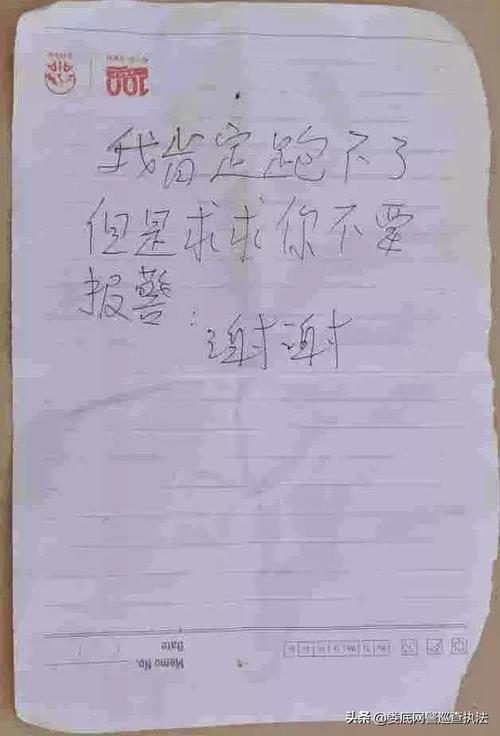 100
我肯定跑不了
但是求求你不要
报警:谢谢
Memo No.
Date
头条 @娄底网警巡查执法